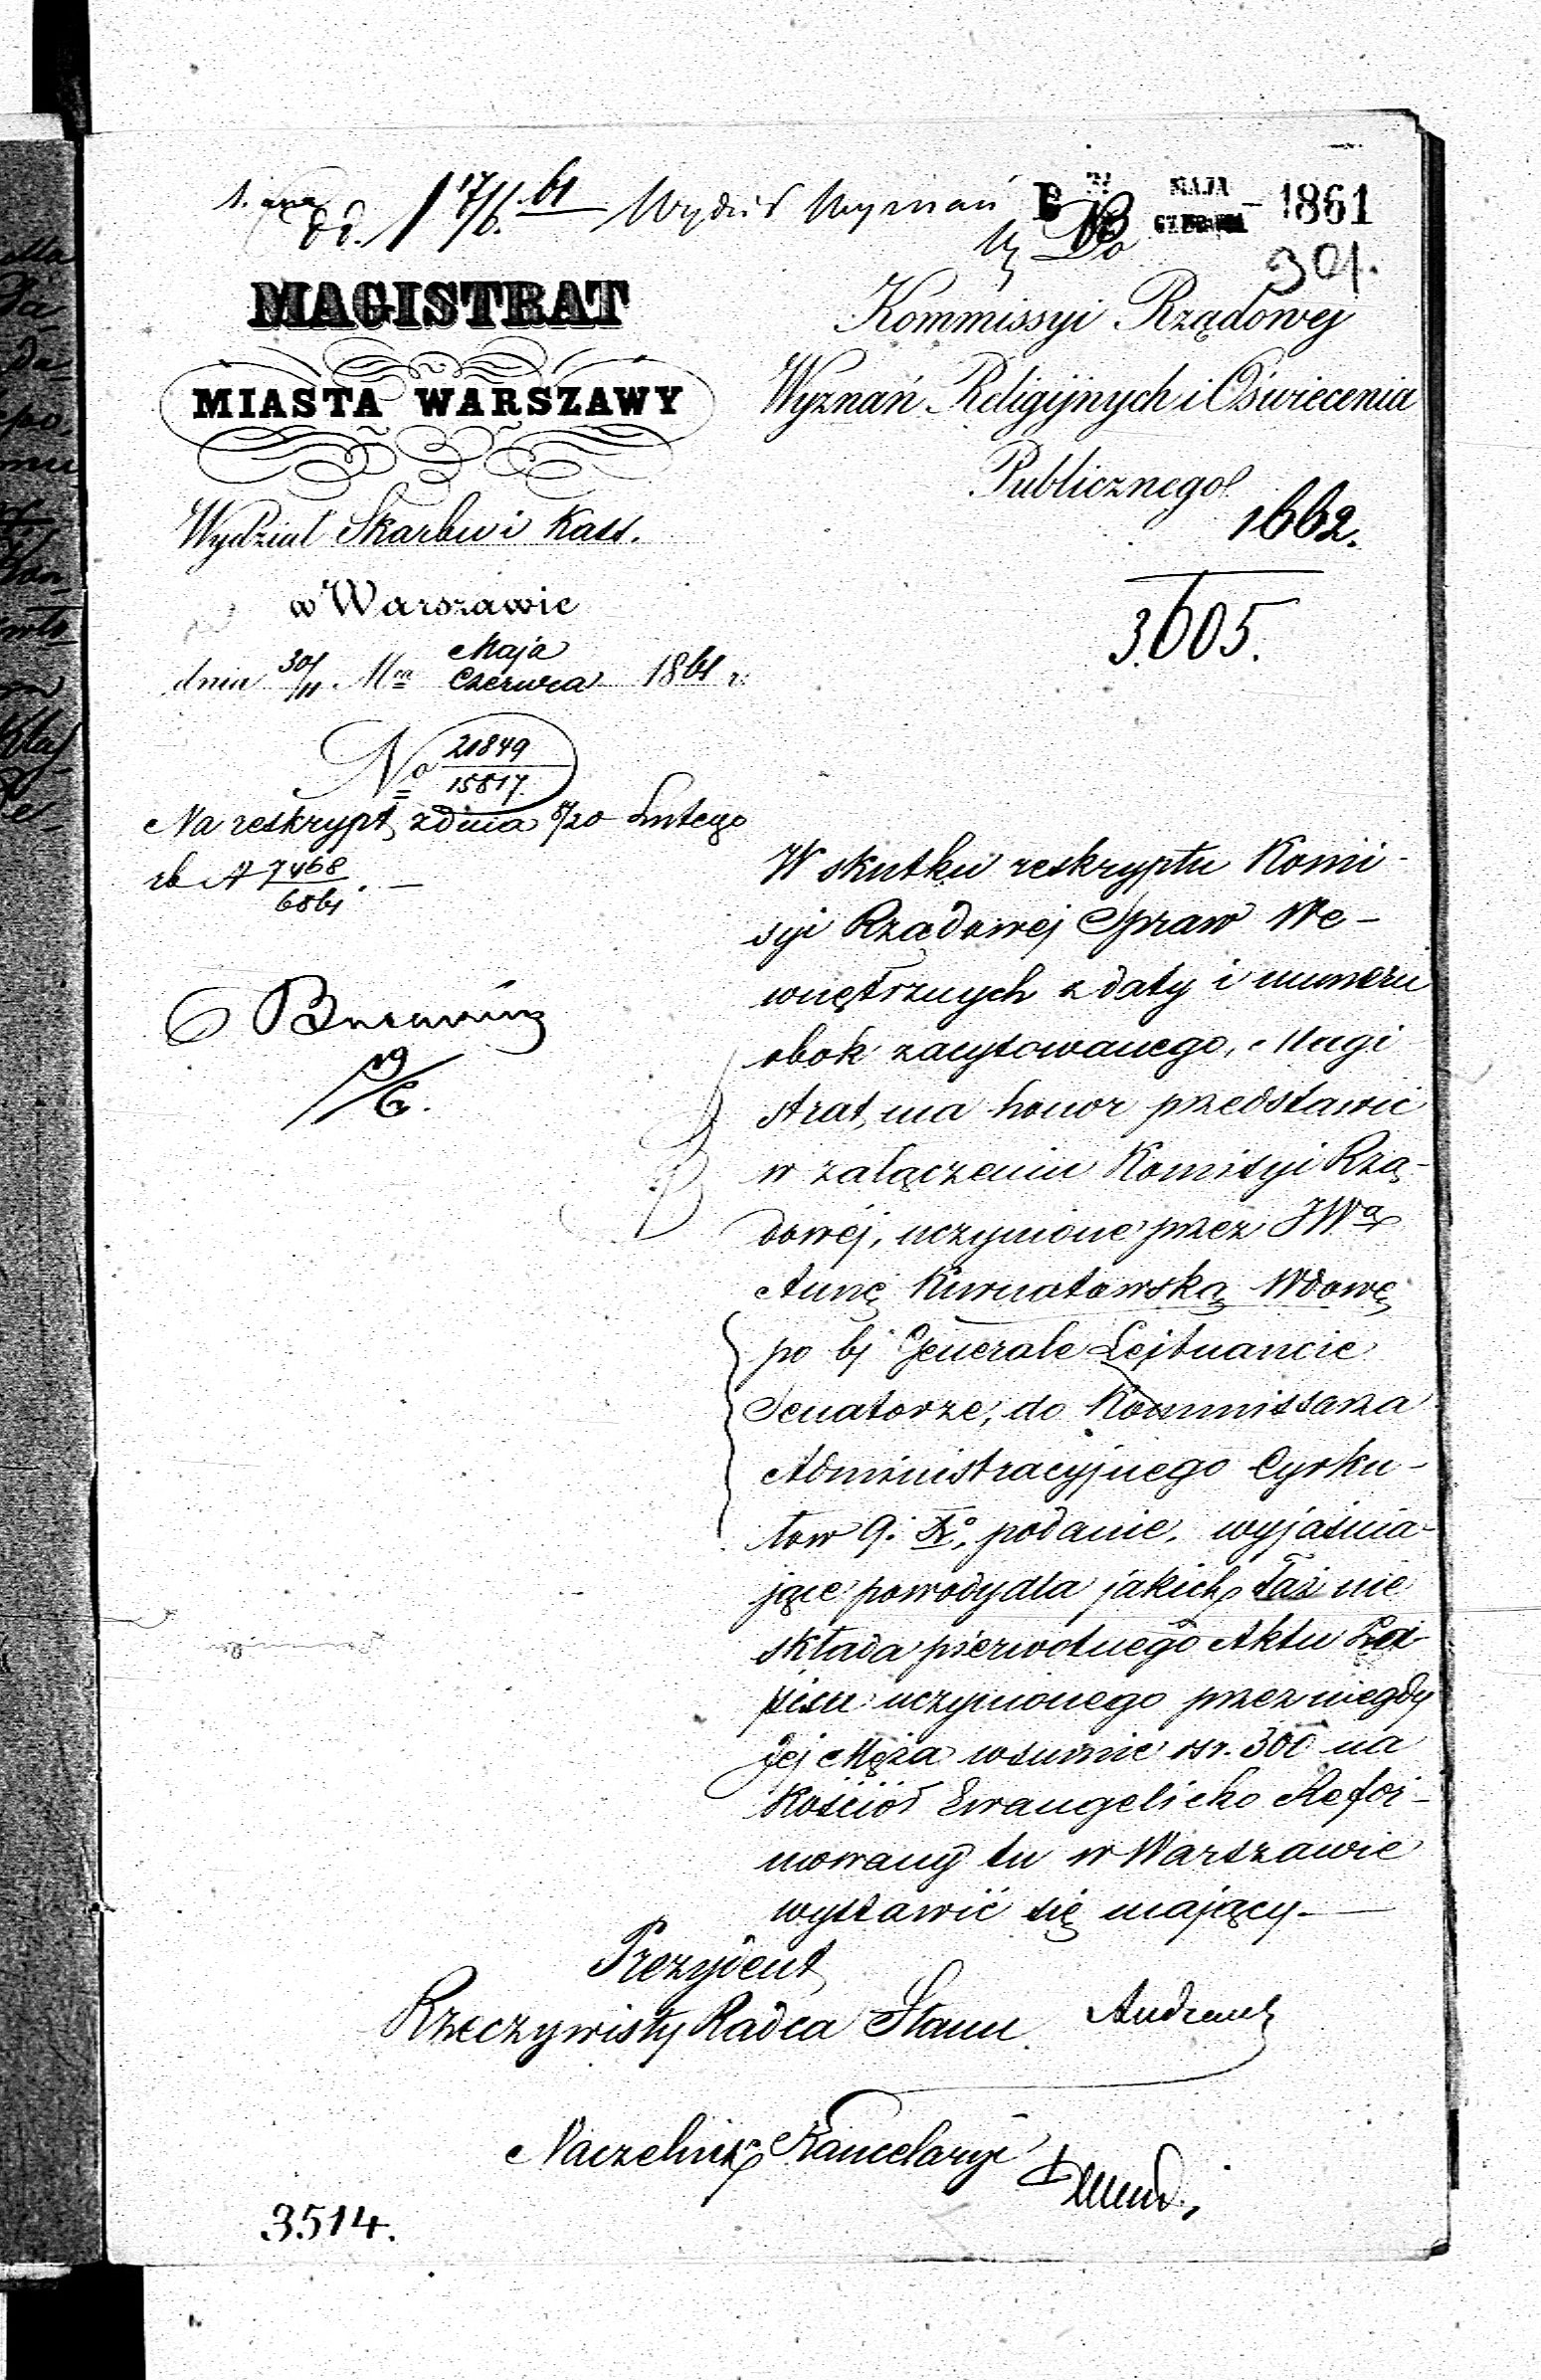 od. 17/6. 61 Wydział Wyznań
MAJA
CZERWCA 1861
301.
MAGISTRAT
MIASTA WARSZAWY
Wydział Skarbu i Kass.
w Warszawie
dnia 30/11 Mca Maja Czerwca 1861 r.
No 21849
15817.
Na reskrypt z dnia 8/20 Lutego
rb N 7468
6861.
19/6.
Do
Kommissyi Rządowej
Wyznań Religijnych i Oświecenia
Publicznego
1662.
3605.
W skutku reskryptu Komi-
syi Rządowej Spraw We-
wnętrznych z daty i numeru
obok zacytowanego, Magi
strat, ma honor przedstawić
w załączeniu Komisyi Rzą-
dowéj, uczynione przez JWą
Annę Kurnatowską Wdowę
po bj Generale Lejtnancie
Senatorze, do Kommissarza
Administracyjnego Cyrku-
łow 9. i podanie, wyjaśnia-
jące powody dla jakich Taż nie
składa pierwotnego Aktu Za
pisu uczynionego przez niegdy
Jej Męża w sumie rsr. 300 na
Kościół Ewangelicko Refor-
mowany tu w Warszawie
wystawić się mający.—
Prezydent
Rzeczywisty Radca Stanu Andrault
Naczelnik Kancelaryi
3514.